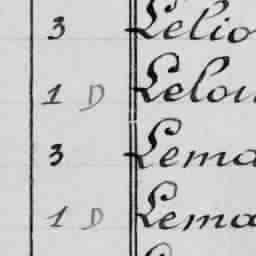 3 Lelio
1 D Lelou
3 Lema
1 D Lema